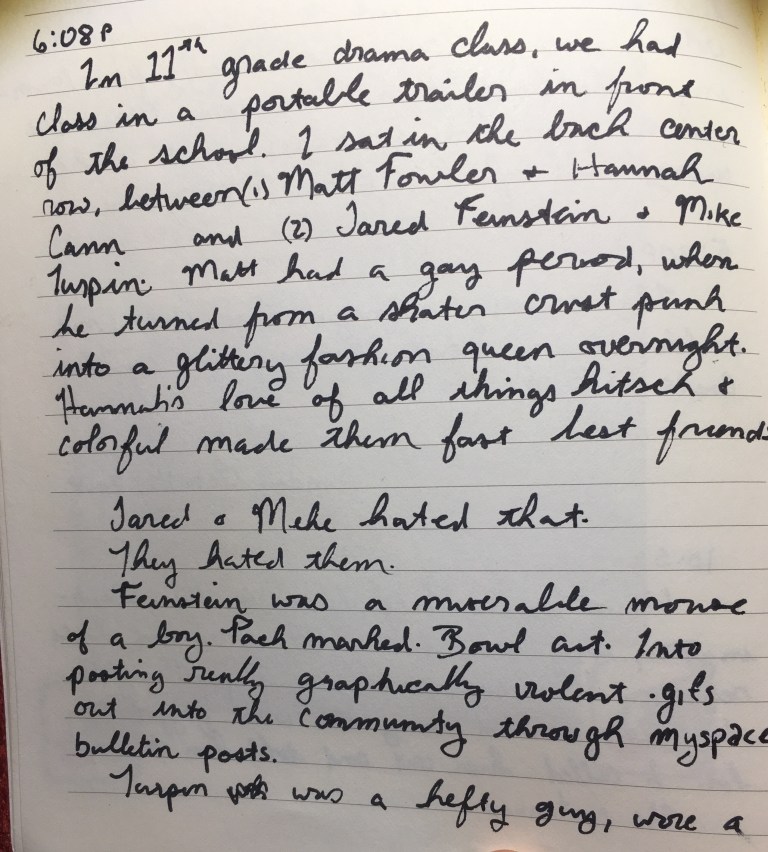 6:08P
In 11th grade drama class, we had
class in a portable trailer in front
of the school. I sat in the back center
row, between (1) Matt Fowler + Hannah
Cann and (2) Jared Feinstein & Mike
Turpin. Matt had a gay period, when
he turned from a skater crust punk
into a glittery fashion queen overnight.
Hannah's love of all things kitsch &
colorful made them fast best friends
Jared & Mike hated that.
They hated them.
Feinstein was a miserable mouse
of a boy. Pock marked. Bowl cut. Into
posting really graphically violent .gifs
out into the community through myspace
bulletin posts.
Turpin was a hefty guy, wore a